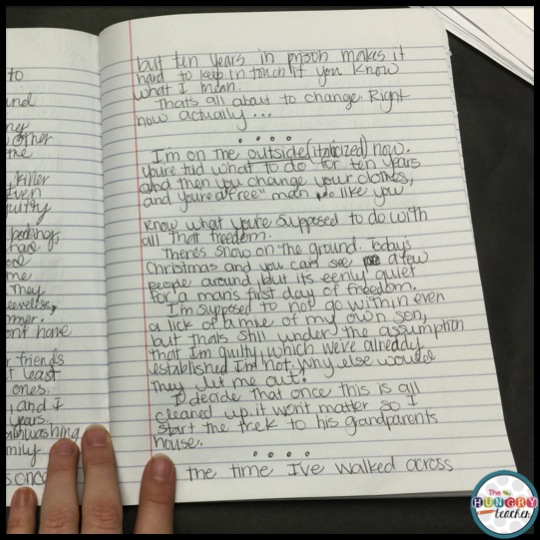 to
und
other
the
killer
Even
guilty
had
me
They
friends
t least
ones.
, and I
years.
mily
but ten years in prison makes it
hard to keep in touch if you know
what I mean.
Thats all about to change. Right
now actually...
I'm on the outside (italicized) now.
Youre told what to do for ten years
and then you change your clothes,
and youre a "free" man like you
know what youre supposed to do with
all that freedom.
Theres snow on the ground. Todays
Christmas and you can see a few
people around, but its eerily quiet
for a mans first day of freedom.
I'm supposed to not go within even
a lick of a mile of my own son,
but thats still under the assumption
that Im guilty, which we've already
established Im not. Why else would
they let me out?
I decide that once this is all
cleaned up, it won't matter so I
start the trek to his grandparents
house.
the time I've walked across
The
HUNGRY
teacher